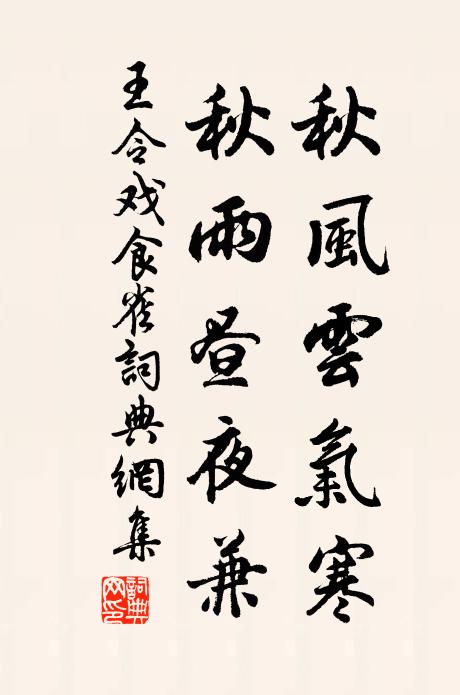 秋風雲氣寒
秋雨昼夜兼
王令戏食雀詞典網集
詞典网印